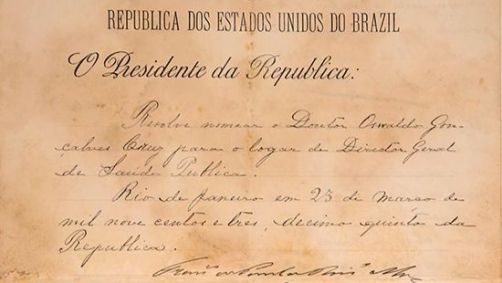 REPUBLICA DOS ESTADOS UNIDOS DO BRAZIL
O Presidente da Republica:
Resolve nomear o Doutor Oswaldo Gon-
çalves Cruz para o logar de Director Geral
de Saude Publica.
Rio de Janeiro em 23 de Março de
mil nove centos e tres, decimo quinto da
Republica.